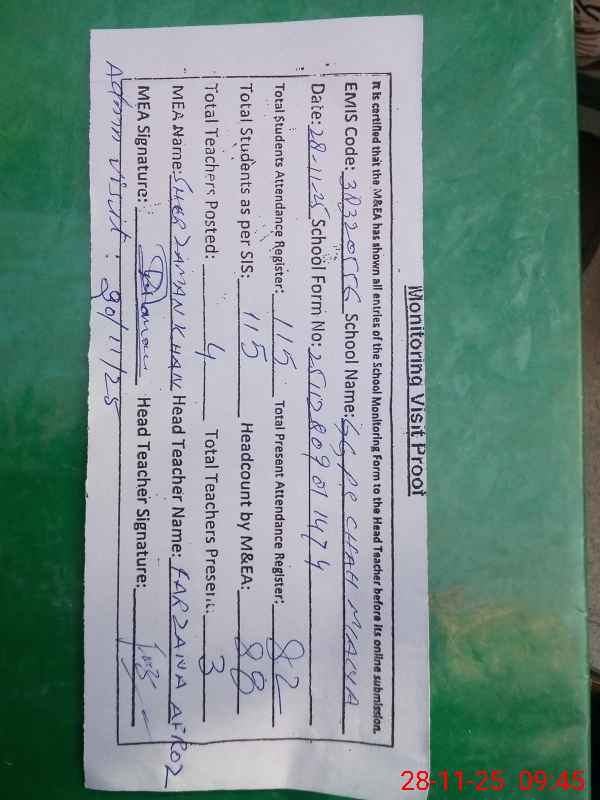 Monitoring Visit Proof
It is certified that the M&EA has shown all entries of the School Monitoring Form to the Head Teacher before its online submission.
EMIS Code: School Name: GGPS CHAH MIALYA
Date: 28-11-25 School Form No: 25112809011474
Total Students Attendance Register: 115 Total Present Attendance Register: 82
Total Students as per SIS: 115 Headcount by M&EA: 88
Total Teachers Posted: 4 Total Teachers Present: 3
MEA Name: SHER ZAMAN KHAN Head Teacher Name: FARZANA AFROZ
MEA Signature: Head Teacher Signature:
Admin Visit: 20/11/25
28-11-25 09:45